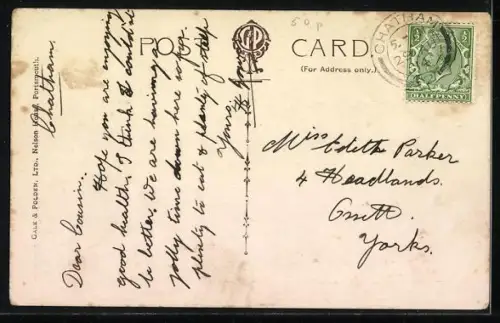 50p
POST CARD
(For Address only.)
CHATHAM
HALFPENNY
GALE & POLDEN, LTD., Nelson House, Portsmouth.
Chatham.
Dear Cousin.
Hope you are enjoying
good health, I think I could not
be better. We are having a
jolly time down here as far
plenty to eat & plenty of sleep
Yours
Miss Edith Parker
4 Headlands.
Ossett.
Yorks.